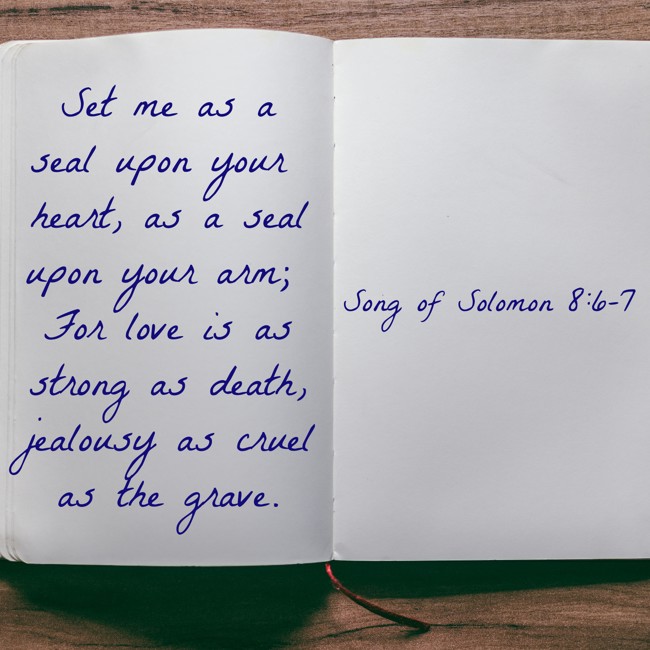 Set me as a
seal upon your
heart, as a seal
upon your arm;
For love is as
strong as death,
jealousy as cruel
as the grave.
Song of Solomon 8:6-7